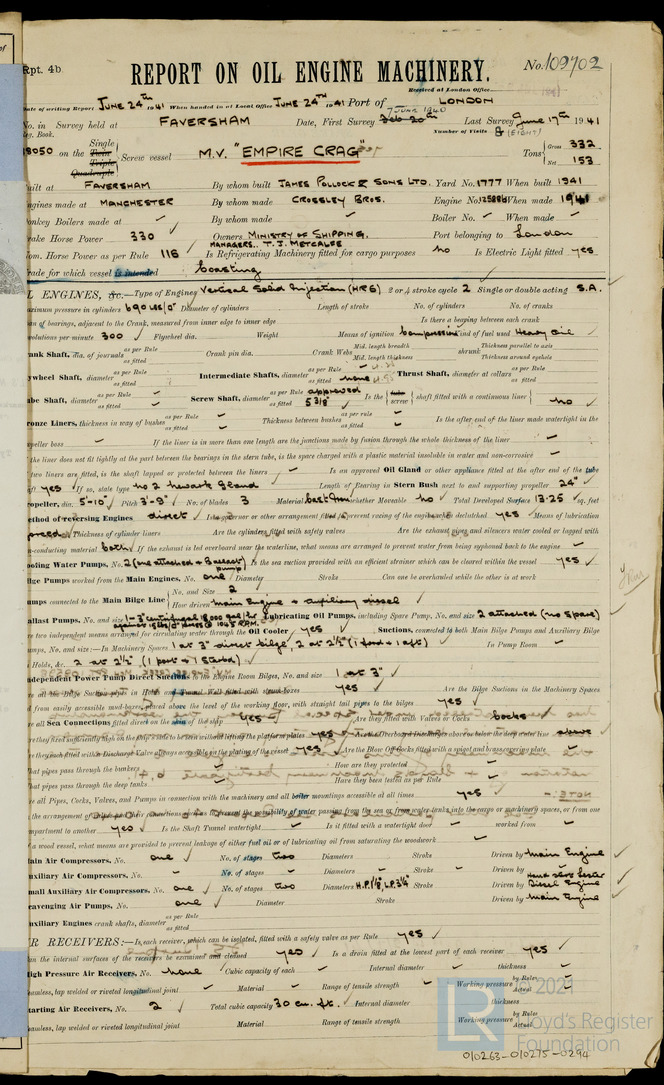 Rpt. 4b
REPORT ON OIL ENGINE MACHINERY.
No. 109702
Received at London Office
Date of writing Report JUNE 24th 1941 When handed in at Local Office JUNE 24th 1941 Port of LONDON
No. in Survey held at FAVERSHAM Date, First Survey 7 June 1940 Last Survey June 17th 1941
Book. Number of Visits 8 (EIGHT)
18050 on the Single Screw vessel M.V. "EMPIRE CRAG" Tons Gross 332
Twin
Triple
Quadruple
Net 153
Built at FAVERSHAM By whom built JAMES POLLOCK & SONS LTD. Yard No. 1777 When built 1941
Engines made at MANCHESTER By whom made CROSSLEY BROS. Engine No. When made 1941
Donkey Boilers made at By whom made Boiler No. When made
Brake Horse Power 330 Owners MINISTRY OF SHIPPING. Port belonging to London
MANAGERS. T. J. METCALFE
Nom. Horse Power as per Rule 116 Is Refrigerating Machinery fitted for cargo purposes no Is Electric Light fitted yes
Trade for which vessel is intended Coasting
OIL ENGINES, &c.—Type of Engines Vertical Solid Injection (HR6) 2 or 4 stroke cycle 2 Single or double acting S.A.
Maximum pressure in cylinders 690 lbs/□" Diameter of cylinders Length of stroke No. of cylinders No. of cranks
Span of bearings, adjacent to the Crank, measured from inner edge to inner edge Is there a bearing between each crank
Revolutions per minute 300 Flywheel dia. Weight Means of ignition Compression Kind of fuel used Heavy oil
Crank Shaft, dia. of journals as per Rule as fitted Crank pin dia. Crank Webs Mid. length breadth Mid. length thickness shrunk Thickness parallel to axis Thickness around eyehole
Flywheel Shaft, diameter as per Rule as fitted Intermediate Shafts, diameter as per Rule as fitted none Thrust Shaft, diameter at collars as per Rule as fitted
Tube Shaft, diameter as per Rule as fitted Screw Shaft, diameter as per Rule approved as fitted 5 3/8" Is the tube screw shaft fitted with a continuous liner no
Bronze Liners, thickness in way of bushes as per Rule as fitted Thickness between bushes as per rule as fitted Is the after end of the liner made watertight in the
propeller boss If the liner is in more than one length are the junctions made by fusion through the whole thickness of the liner
If the liner does not fit tightly at the part between the bearings in the stern tube, is the space charged with a plastic material insoluble in water and non-corrosive
If two liners are fitted, is the shaft lapped or protected between the liners Is an approved Oil Gland or other appliance fitted at the after end of the tube
shaft yes If so, state type No 2 Newark Gland Length of Bearing in Stern Bush next to and supporting propeller 24"
Propeller, dia. 5'-10" Pitch 3'-9" No. of blades 3 Material Cast Iron whether Moveable no Total Developed Surface 13.25 sq. feet
Method of reversing Engines direct Is a governor or other arrangement fitted to prevent racing of the engine when declutched yes Means of lubrication
forced Thickness of cylinder liners Are the cylinders fitted with safety valves Are the exhaust pipes and silencers water cooled or lagged with
non-conducting material both If the exhaust is overboard near the waterline, what means are arranged to prevent water from being syphoned back to the engine
Cooling Water Pumps, No. 2 (one attached + Ballast pump) Is the sea suction provided with an efficient strainer which can be cleared within the vessel yes
Bilge Pumps worked from the Main Engines, No. one Diameter Stroke Can one be overhauled while the other is at work
Pumps connected to the Main Bilge Line No. and Size 2
How driven main Engine + auxiliary diesel
Ballast Pumps, No. & size 1-3" centrifugal 18,000 gal/hr Lubricating Oil Pumps, including Spare Pump, No. and size 2 attached (no spare)
Are two independent means arranged for circulating water through the Oil Cooler yes Suctions, connected to both Main Bilge Pumps and Auxiliary Bilge
Pumps, No. and size:—In Machinery Spaces 1 at 3" direct bilge, 2 at 2½" (1 ford + 1 aft) In Pump Room
In Holds, &c. 2 at 2½", (1 port + 1 starbd)
Independent Power Pump Direct Suctions to the Engine Room Bilges, No. and size 1 at 3"
Are all the Bilge Suctions in Holds and Tunnel Well fitted with strum-boxes yes Are the Bilge Suctions in the Machinery Spaces
led from easily accessible mud-boxes, placed above the level of the working floor, with straight tail pipes to the bilges yes
Are all Sea Connections fitted direct on the skin of the ship yes Are they fitted with Valves or Cocks Cocks
Are they fixed sufficiently high on the ship's side to be seen without lifting the platform plates yes Are the Overboard Discharges above or below the deep water line above
Are they each fitted with a Discharge Valve always accessible on the plating of the vessel yes Are the Blow Off Cocks fitted with a spigot and brass covering plate
What pipes pass through the bunkers How are they protected
What pipes pass through the deep tanks Have they been tested as per Rule
Are all Pipes, Cocks, Valves, and Pumps in connection with the machinery and all boiler mountings accessible at all times yes
Is the arrangement of
compartment to another yes Is the Shaft Tunnel watertight Is it fitted with a watertight door worked from
If a wood vessel, what means are provided to prevent leakage of either fuel oil or of lubricating oil from saturating the woodwork
Main Air Compressors, No. one No. of stages two Diameters Stroke Driven by Main Engine
Auxiliary Air Compressors, No. No. of stages Diameters Stroke Driven by
Small Auxiliary Air Compressors, No. one No. of stages two Diameters H.P. 1⅛", L.P. 3¼" Stroke Driven by Diesel Engine
Scavenging Air Pumps, No. one Diameter Stroke Driven by Main Engine
Auxiliary Engines crank shafts, diameter as per Rule as fitted
AIR RECEIVERS:—Is each receiver, which can be isolated, fitted with a safety valve as per Rule yes
Can the internal surfaces of the receivers be examined and cleaned yes Is a drain fitted at the lowest part of each receiver yes
High Pressure Air Receivers, No. none Cubic capacity of each Internal diameter thickness
Seamless, lap welded or riveted longitudinal joint Material Range of tensile strength Working pressure by Rules Actual
Starting Air Receivers, No. 2 Total cubic capacity 30 cu. ft. Internal diameter thickness
Seamless, lap welded or riveted longitudinal joint Material Range of tensile strength Working pressure by Rules Actual
LR © 2021
Lloyd's Register
Foundation
010263-010275-0294